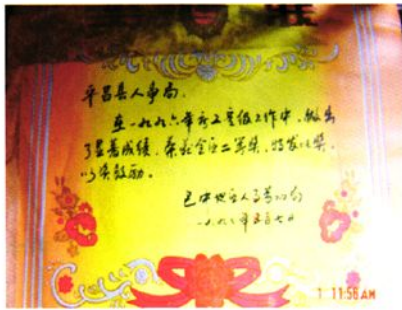 平昌县人事局:
在一九九六年度工作中，做出
了显著成绩，荣获全区二等奖，特发此奖，
以资鼓励。
巴中地区人事局
一九九七年 月七日
1 11:56AM